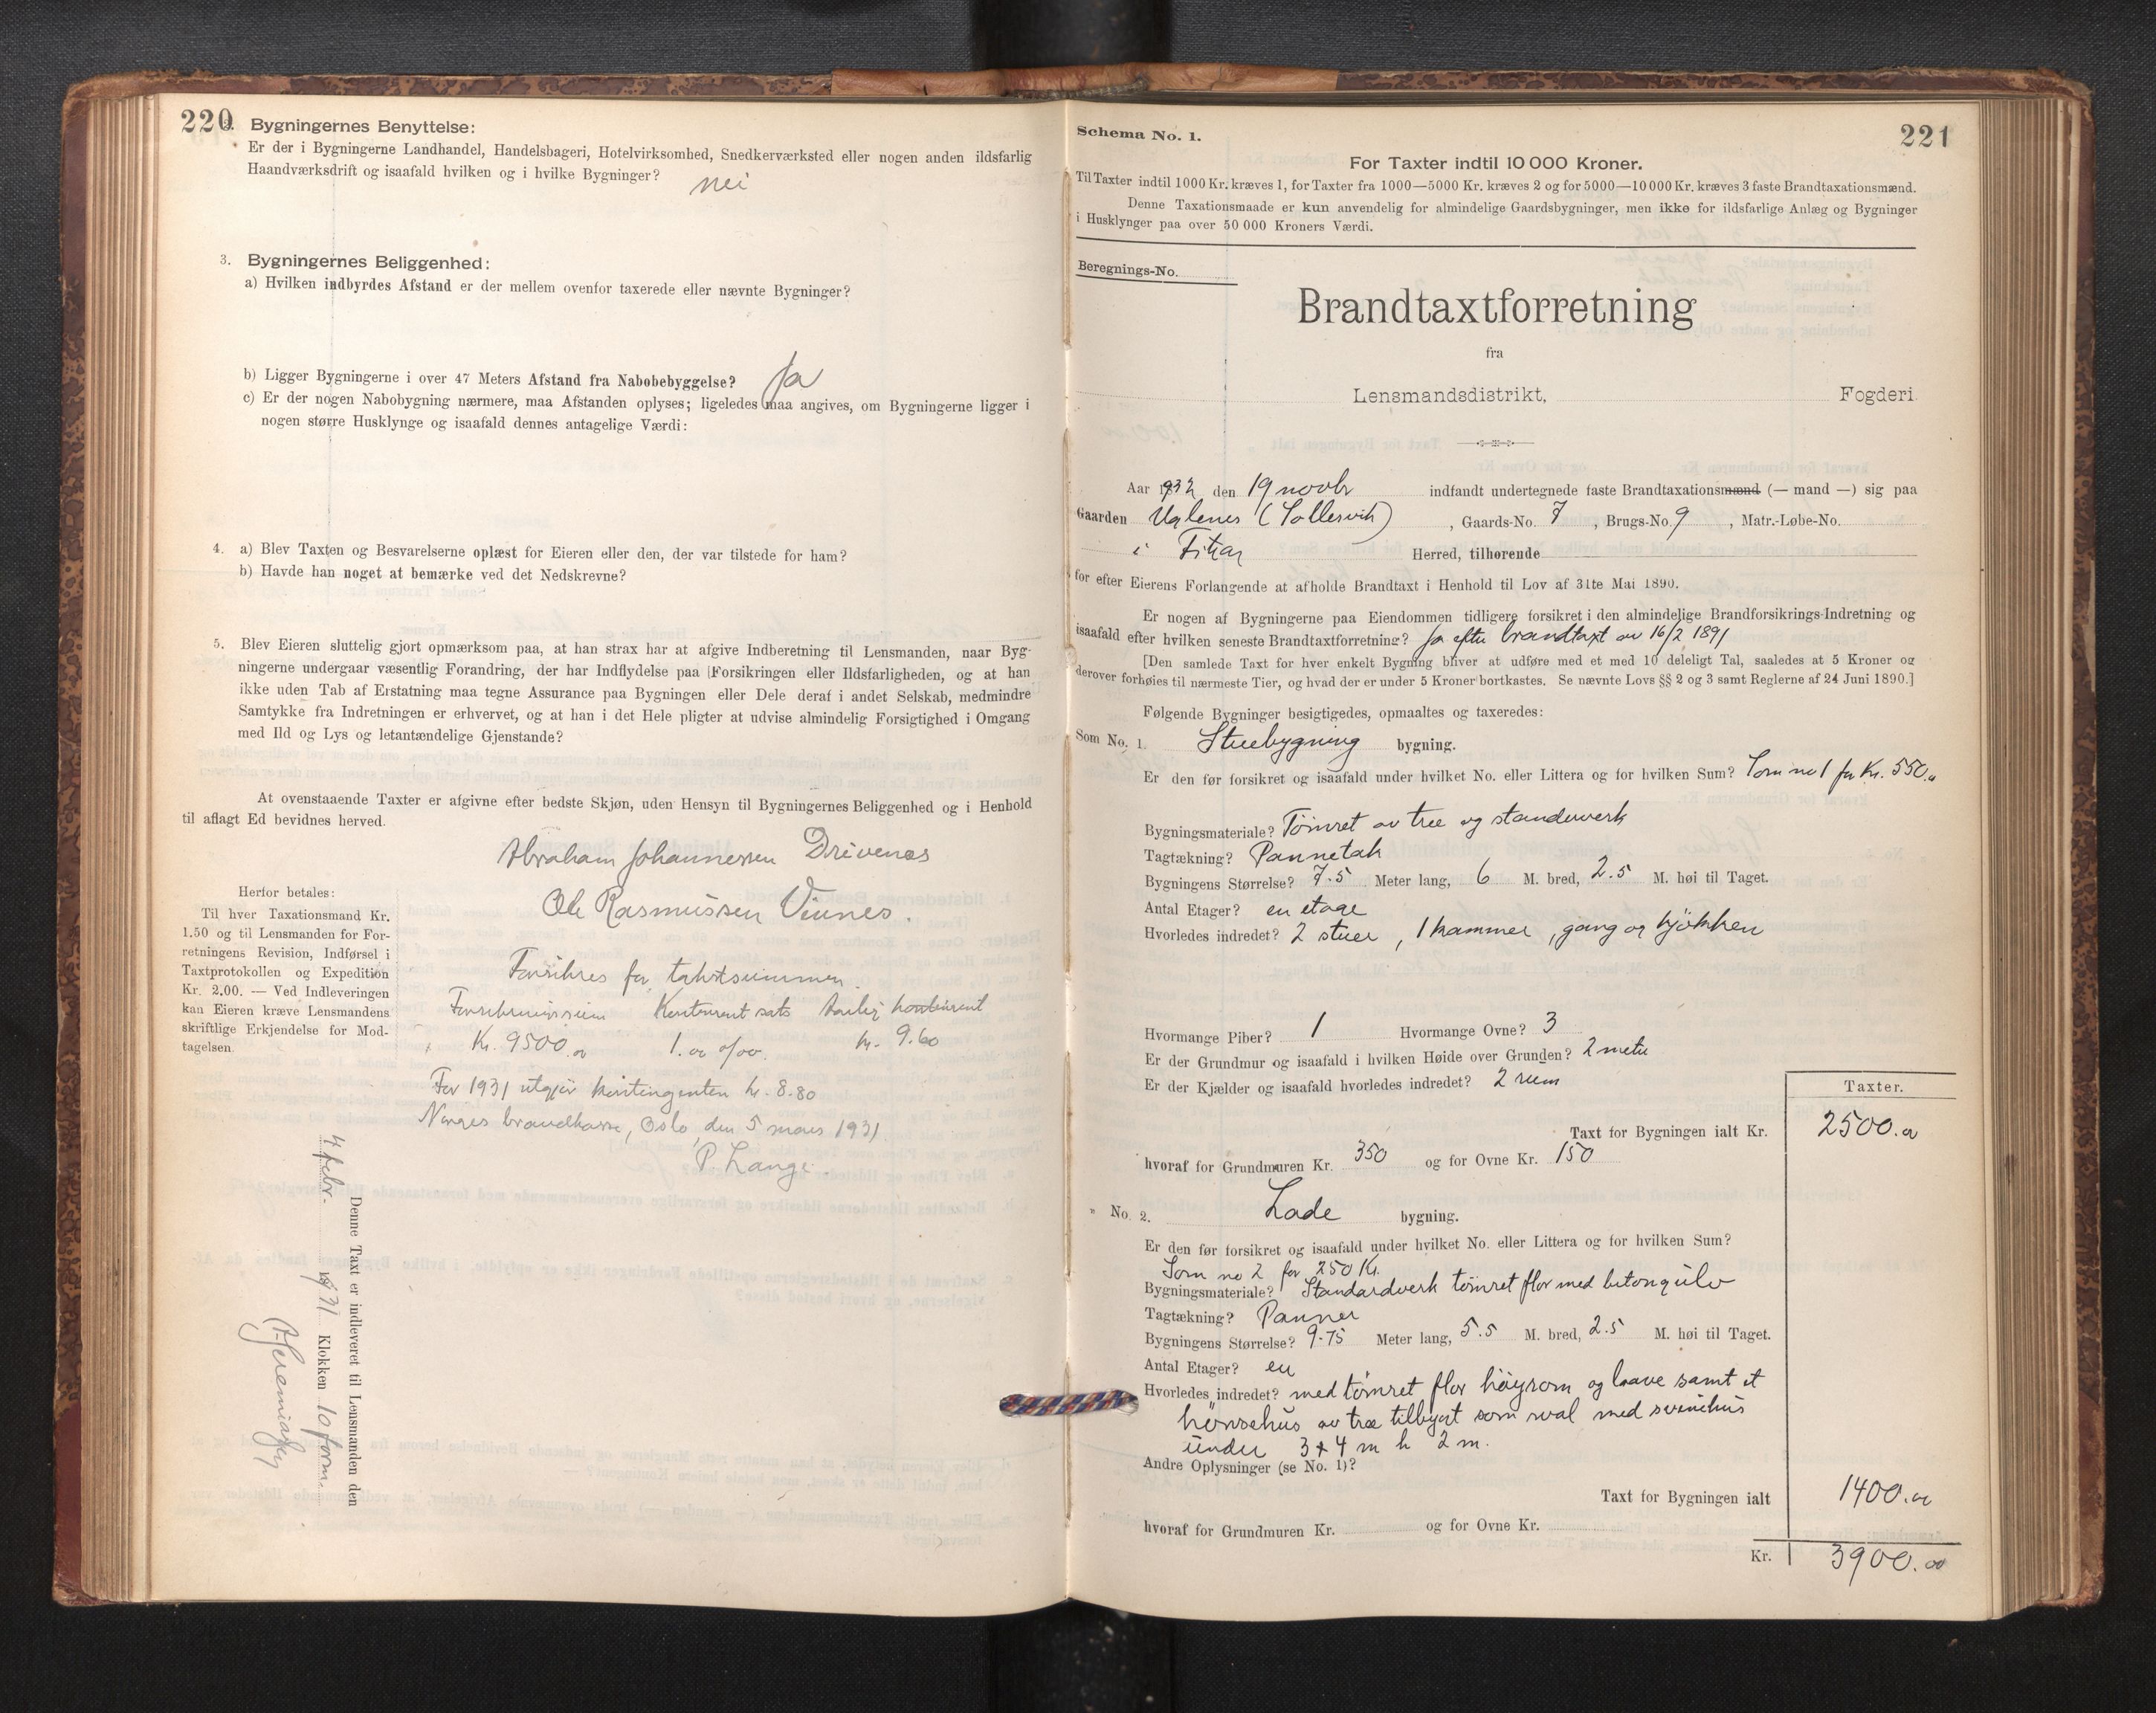 220
2. Bygningernes Benyttelse:
Er der i Bygningerne Landhandel, Handelsbageri, Hotelvirksomhed, Snedkerværksted eller nogen anden ildsfarlig
Haandværksdrift og isaafald hvilken og i hvilke Bygninger? nei
3. Bygningernes Beliggenhed:
a) Hvilken indbyrdes Afstand er der mellem ovenfor taxerede eller nævnte Bygninger?
b) Ligger Bygningerne i over 47 Meters Afstand fra Nabobebyggelse? Ja
c) Er der nogen Nabobygning nærmere, maa Afstanden oplyses; ligeledes maa angives, om Bygningerne ligger i
nogen større Husklynge og isaafald dennes antagelige Værdi:
4. a) Blev Taxten og Besvarelserne oplæst for Eieren eller den, der var tilstede for ham?
b) Havde han noget at bemærke ved det Nedskrevne?
5. Blev Eieren sluttelig gjort opmærksom paa, at han strax har at afgive Indberetning til Lensmanden, naar Byg-
ningerne undergaar væsentlig Forandring, der har Indflydelse paa Forsikringen eller Ildsfarligheden, og at han
ikke uden Tab af Erstatning maa tegne Assurance paa Bygningen eller Dele deraf i andet Selskab, medmindre
Samtykke fra Indretningen er erhvervet, og at han i det Hele pligter at udvise almindelig Forsigtighed i Omgang
med Ild og Lys og letantændelige Gjenstande?
At ovenstaaende Taxter er afgivne efter bedste Skjøn, uden Hensyn til Bygningernes Beliggenhed og i Henhold
til aflagt Ed bevidnes herved.
Abraham Johannessen Drivenes
Ole Rasmussen Vinnes.
Herfor betales:
Til hver Taxationsmand Kr.
1.50 og til Lensmanden for For-
retningens Revision, Indførsel i
Taxtprotokollen og Expedition
Kr. 2.00. — Ved Indleveringen
kan Eieren kræve Lensmandens
skriftlige Erkjendelse for Mod-
tagelsen.
Forsikres for takstsummen.
Forsikringssum Kontingent sats Aarlig kontingent
Kr. 9500.00 1.00 o/oo. kr. 9.60
For 1931 utgjør kontingenten kr. 8.80
Norges brandkasse, Oslo, den 5 mars 1931.
P. Lange.
Denne Taxt er indleveret til Lensmanden den
4 febr. 1931 Klokken 10 form.
221
Schema No. 1.
For Taxter indtil 10 000 Kroner.
Til Taxter indtil 1000 Kr. kræves 1, for Taxter fra 1000—5000 Kr. kræves 2 og for 5000—10 000 Kr. kræves 3 faste Brandtaxationsmænd.
Denne Taxationsmaade er kun anvendelig for almindelige Gaardsbygninger, men ikke for ildsfarlige Anlæg og Bygninger
i Husklynger paa over 50 000 Kroners Værdi.
Beregnings-No.
Brandtaxtforretning
fra
Lensmandsdistrikt, Fogderi
Aar 1932 den 19 novbr indfandt undertegnede faste Brandtaxationsmænd (— mand —) sig paa
Gaarden Uglenes (Sollesvik), Gaards-No. 7, Brugs-No. 9, Matr.-Løbe-No.
i Fitjar Herred, tilhørende
for efter Eierens Forlangende at afholde Brandtaxt i Henhold til Lov af 31te Mai 1890.
Er nogen af Bygningerne paa Eiendommen tidligere forsikret i den almindelige Brandforsikrings-Indretning og
isaafald efter hvilken seneste Brandtaxtforretning? Ja efter brandtaxt av 16/2 1891
[Den samlede Taxt for hver enkelt Bygning bliver at udføre med et med 10 deleligt Tal, saaledes at 5 Kroner og
derover forhøies til nærmeste Tier, og hvad der er under 5 Kroner bortkastes. Se nævnte Lovs §§ 2 og 3 samt Reglerne af 24 Juni 1890.]
Følgende Bygninger besigtigedes, opmaaltes og taxeredes:
Som No. 1. Stuebygning bygning.
Er den før forsikret og isaafald under hvilket No. eller Littera og for hvilken Sum? Som no 1 for Kr. 550.00
Bygningsmateriale? Tömret av tree og standerverk
Tagtækning? Pannetak
Bygningens Størrelse? 7.5 Meter lang, 6 M. bred, 2.5 M. høi til Taget.
Antal Etager? en etage
Hvorledes indredet? 2 stuer, 1 kammer, gang og kjökken
Hvormange Piber? 1 Hvormange Ovne? 3
Er der Grundmur og isaafald i hvilken Høide over Grunden? 2 meter
Er der Kjælder og isaafald hvorledes indredet? 2 rum
Taxter.
Taxt for Bygningen ialt Kr. 2500.00
hvoraf for Grundmuren Kr. 350 og for Ovne Kr. 150
" No. 2. Lade bygning.
Er den før forsikret og isaafald under hvilket No. eller Littera og for hvilken Sum?
Som no 2 for 250 Kr.
Bygningsmateriale? Standardverk tömret flor med betongulv
Tagtækning? Panner
Bygningens Størrelse? 9.75 Meter lang, 5.5 M. bred, 2.5 M. høi til Taget.
Antal Etager? en
Hvorledes indredet? med tömret flor höyrom og laave samt et
hönsehus av træ tilbygt som sval med svinehus
under 3 x 4 m h 2 m.
Andre Oplysninger (se No. 1)?
Taxt for Bygningen ialt 1400.00
hvoraf for Grundmuren Kr. og for Ovne Kr.
Kr. 3900.00